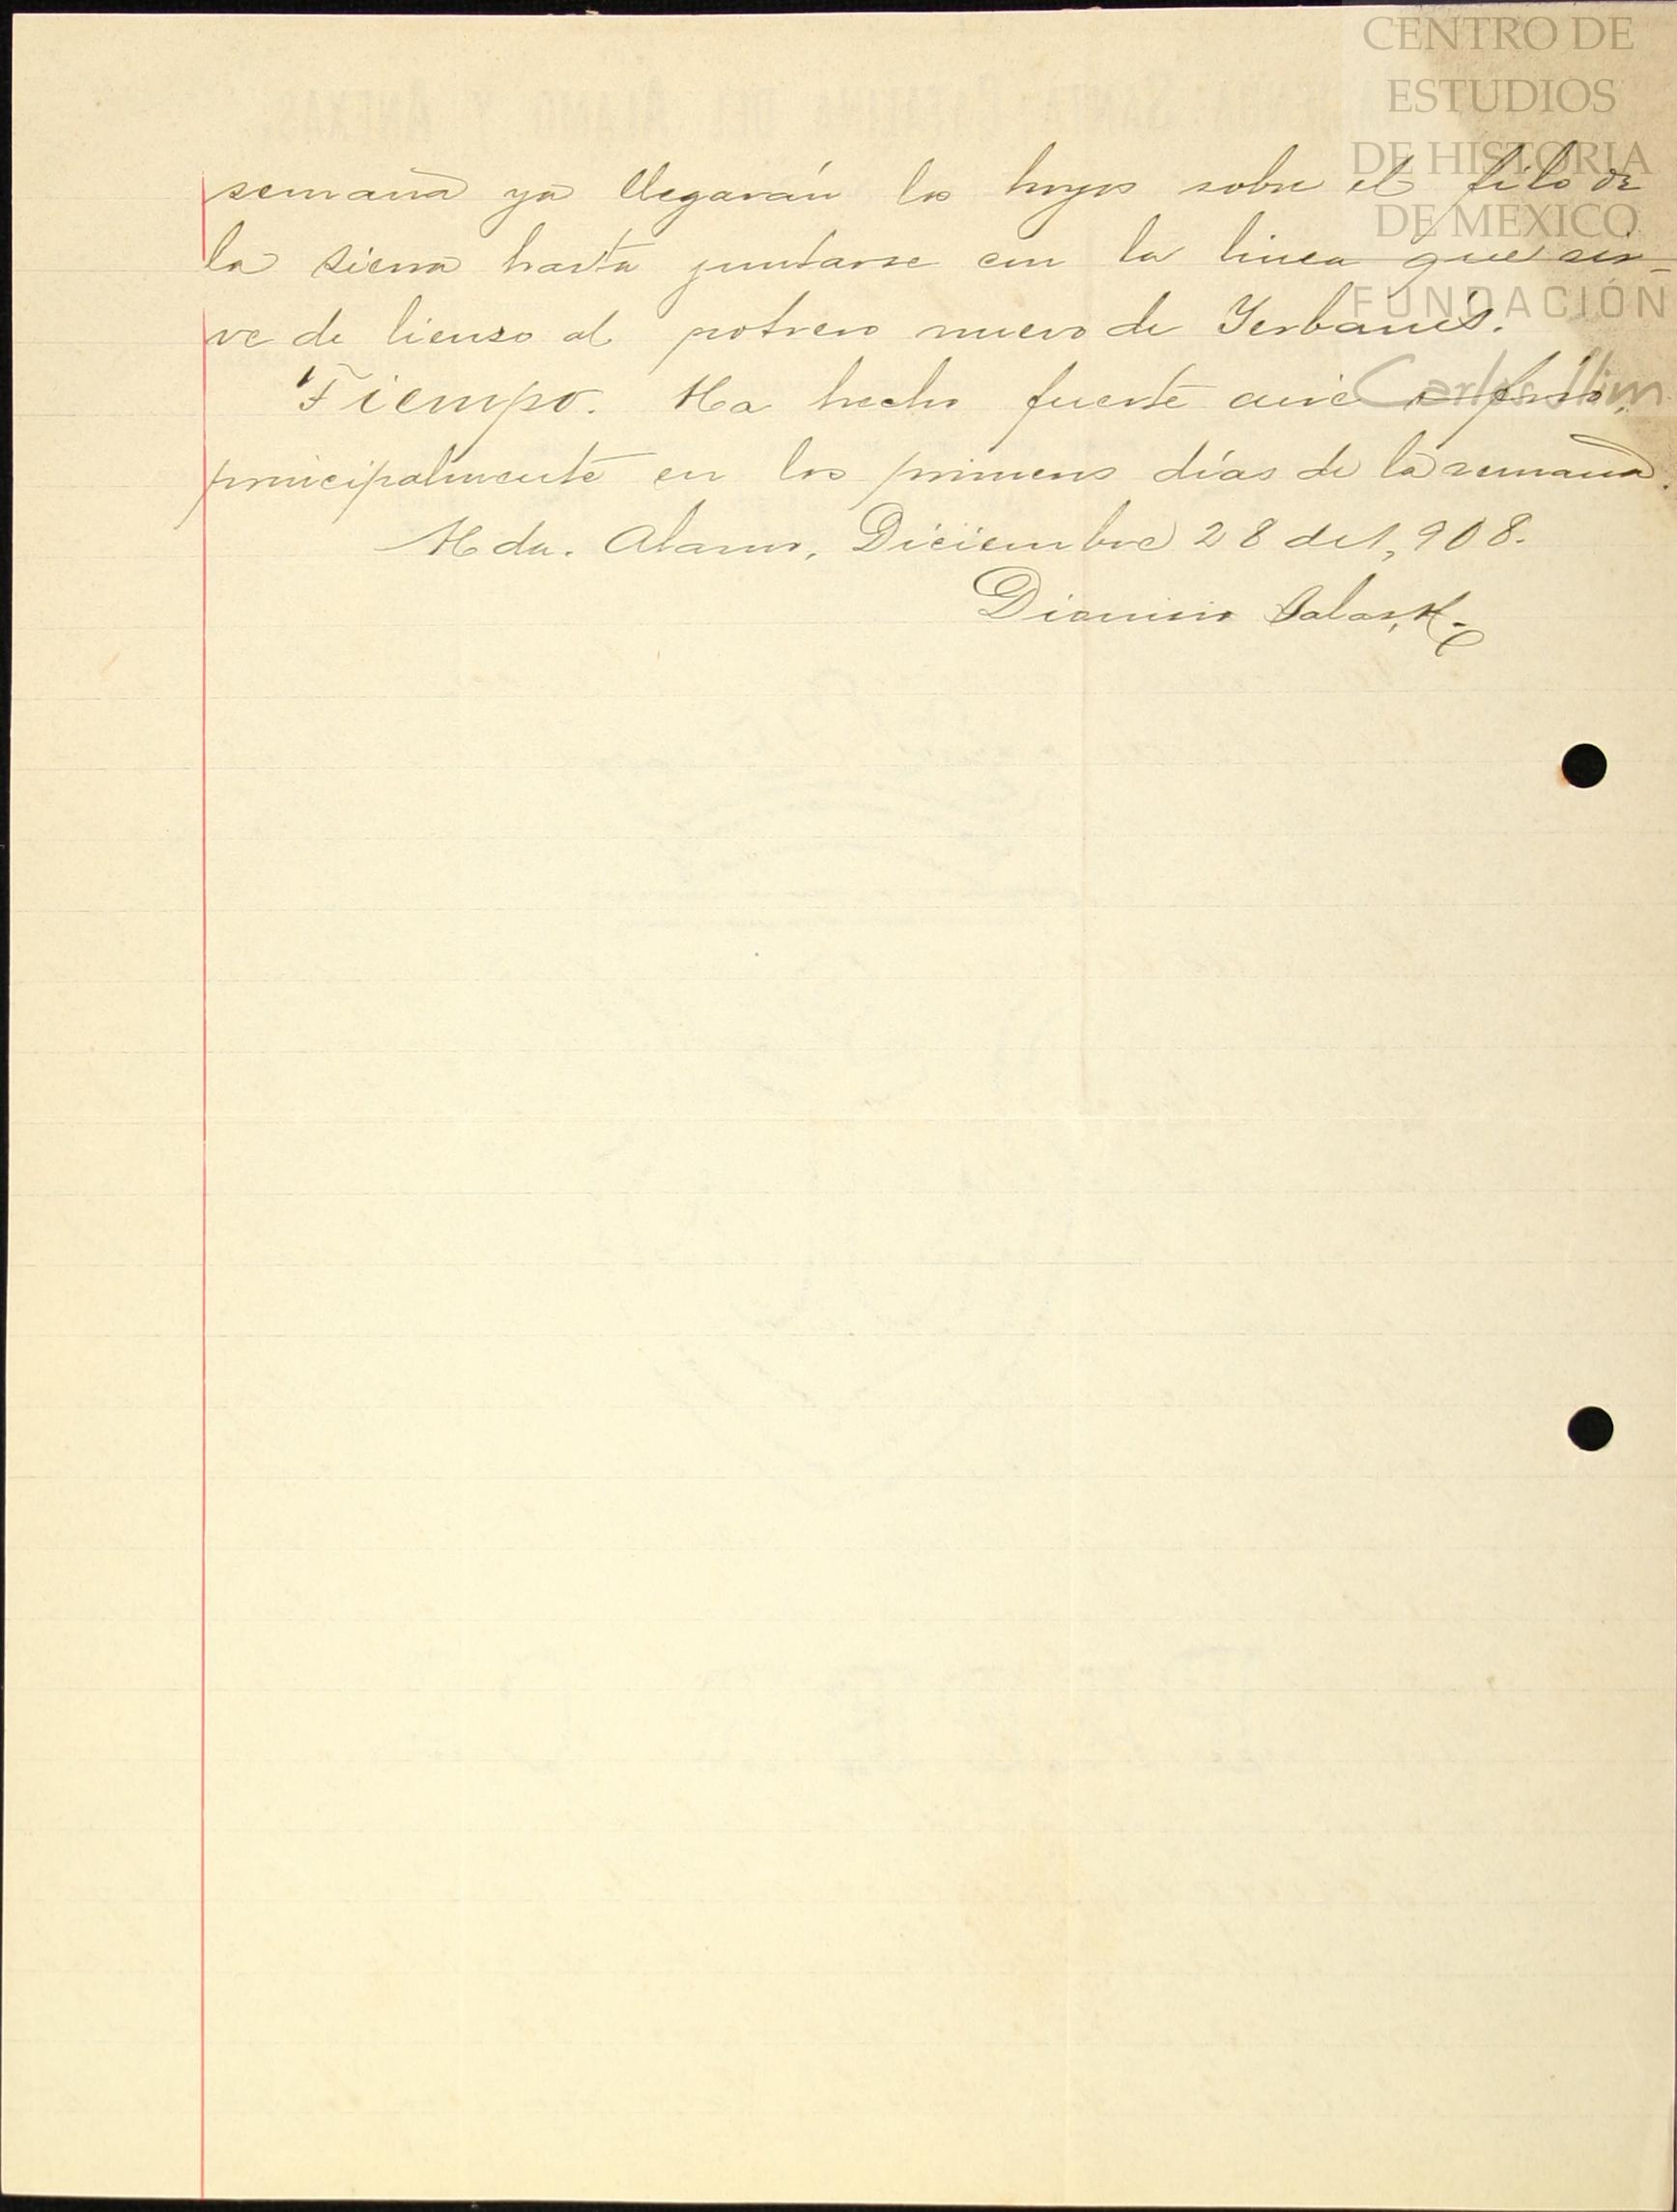 CENTRO DE
ESTUDIOS
DE HISTORIA
DE MEXICO
FUNDACIÓN
Carlos Slim
semana ya llegarán los hoyos sobre el filo de
la sierra hasta juntarse con la linea que sir-
ve de lienso al potrero nuevo de Yerbanis.
Tiempo. Ha hecho fuerte aire y frio,
principalmente en los primeros días de la semana.
Hda. Alamo, Diciembre 28 de 1,908.
Dionisio Salas,